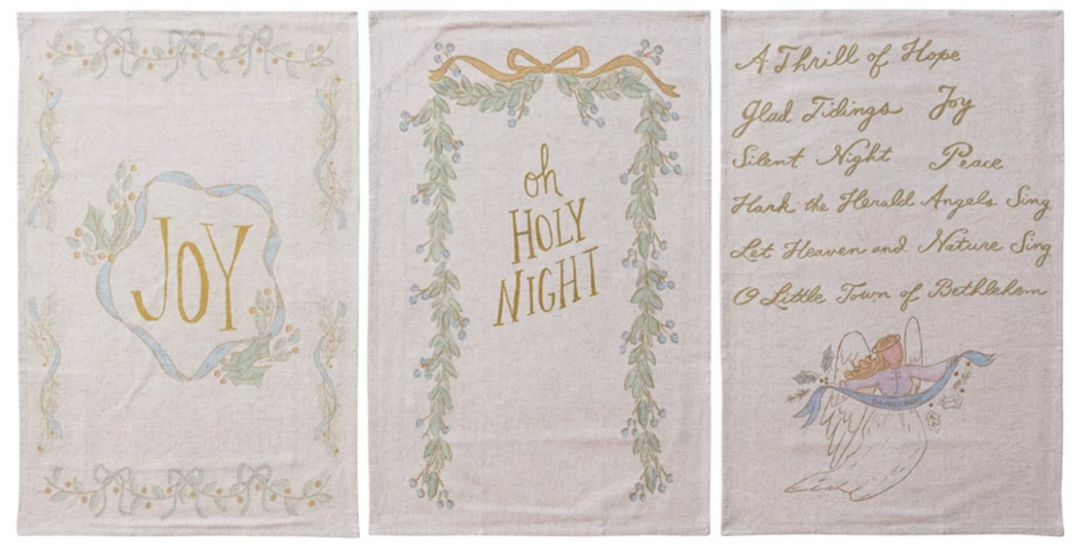 JOY
oh
HOLY
NIGHT
A Thrill of Hope
Glad Tidings Joy
Silent Night Peace
Hark the Herald Angels Sing
Let Heaven and Nature Sing
O Little Town of Bethlehem